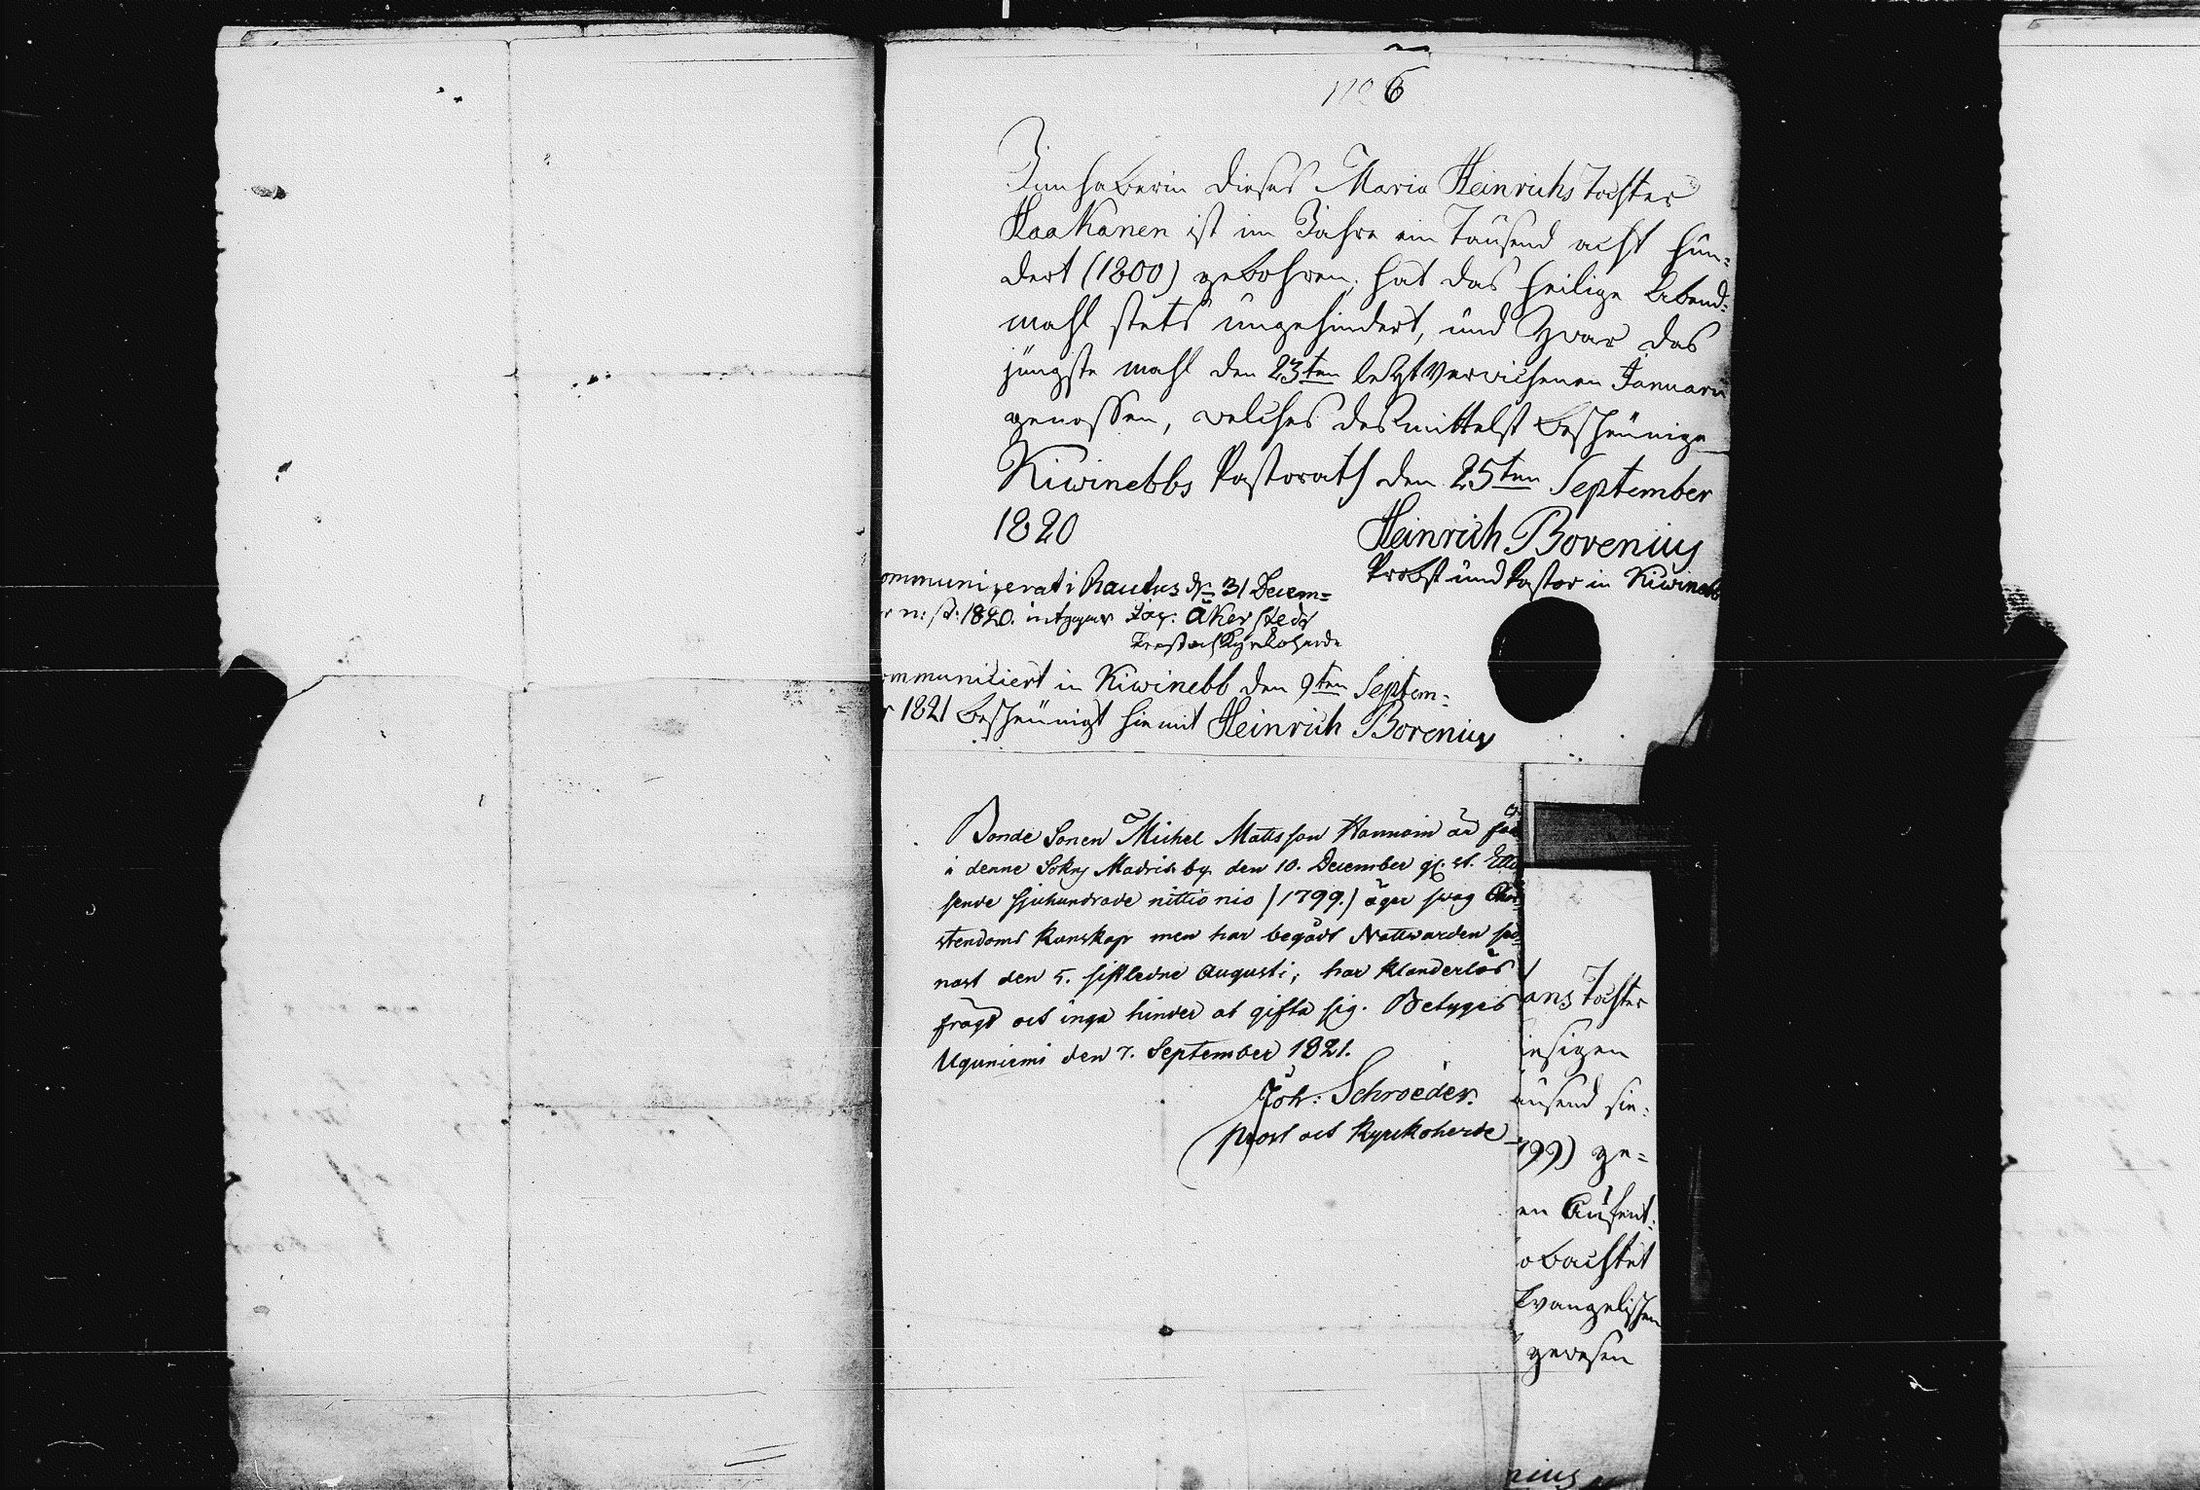 1106
Innhaberin dieses Maria Heinrichs Tochter
Haakanen ist im Jahre ein Tausend acht hun-
dert (1800) gebohren, hat das heilige Abend-
mahl stets ungehindert, und zwar das
jüngste mahl den 23ten letzt verwichenen Januarii
genossen, welches desmittelst bescheinige
Kiwinebbs Pastorath den 25ten September
1820 Heinrich Borenius
Probst und Pastor in Kiwinebb
ommuniz: Rautus d. 31 Decem=
r n: st: 1820. Jac: Åkerstedt
Prost och Kyrkoherde
ommuniciert in Kiwinebb den 9ten Septem-
r 1821 bescheinigt hiemit Heinrich Borenius
Bonde Sonen Michel Mattsson är föd
i denne Sokns Madris by den 10. December gl. st. Ettu
sende sjuhundrade nittio nio (1799.) äger swag Chri-
stendoms kunskap men har begådt Nattwarden sed-
nast den 5. sistledne Augusti; har klanderlös
frägd och inga hinder at gifta sig. Betygas
Uguniemi den 7. September 1821.
Joh: Schroeder.
Prost och Kyrckoherde
ans Tochter
iesigen
ausend sie-
799) ge-
en Aufent-
obachtet
Evangelischen
gewesen
nius